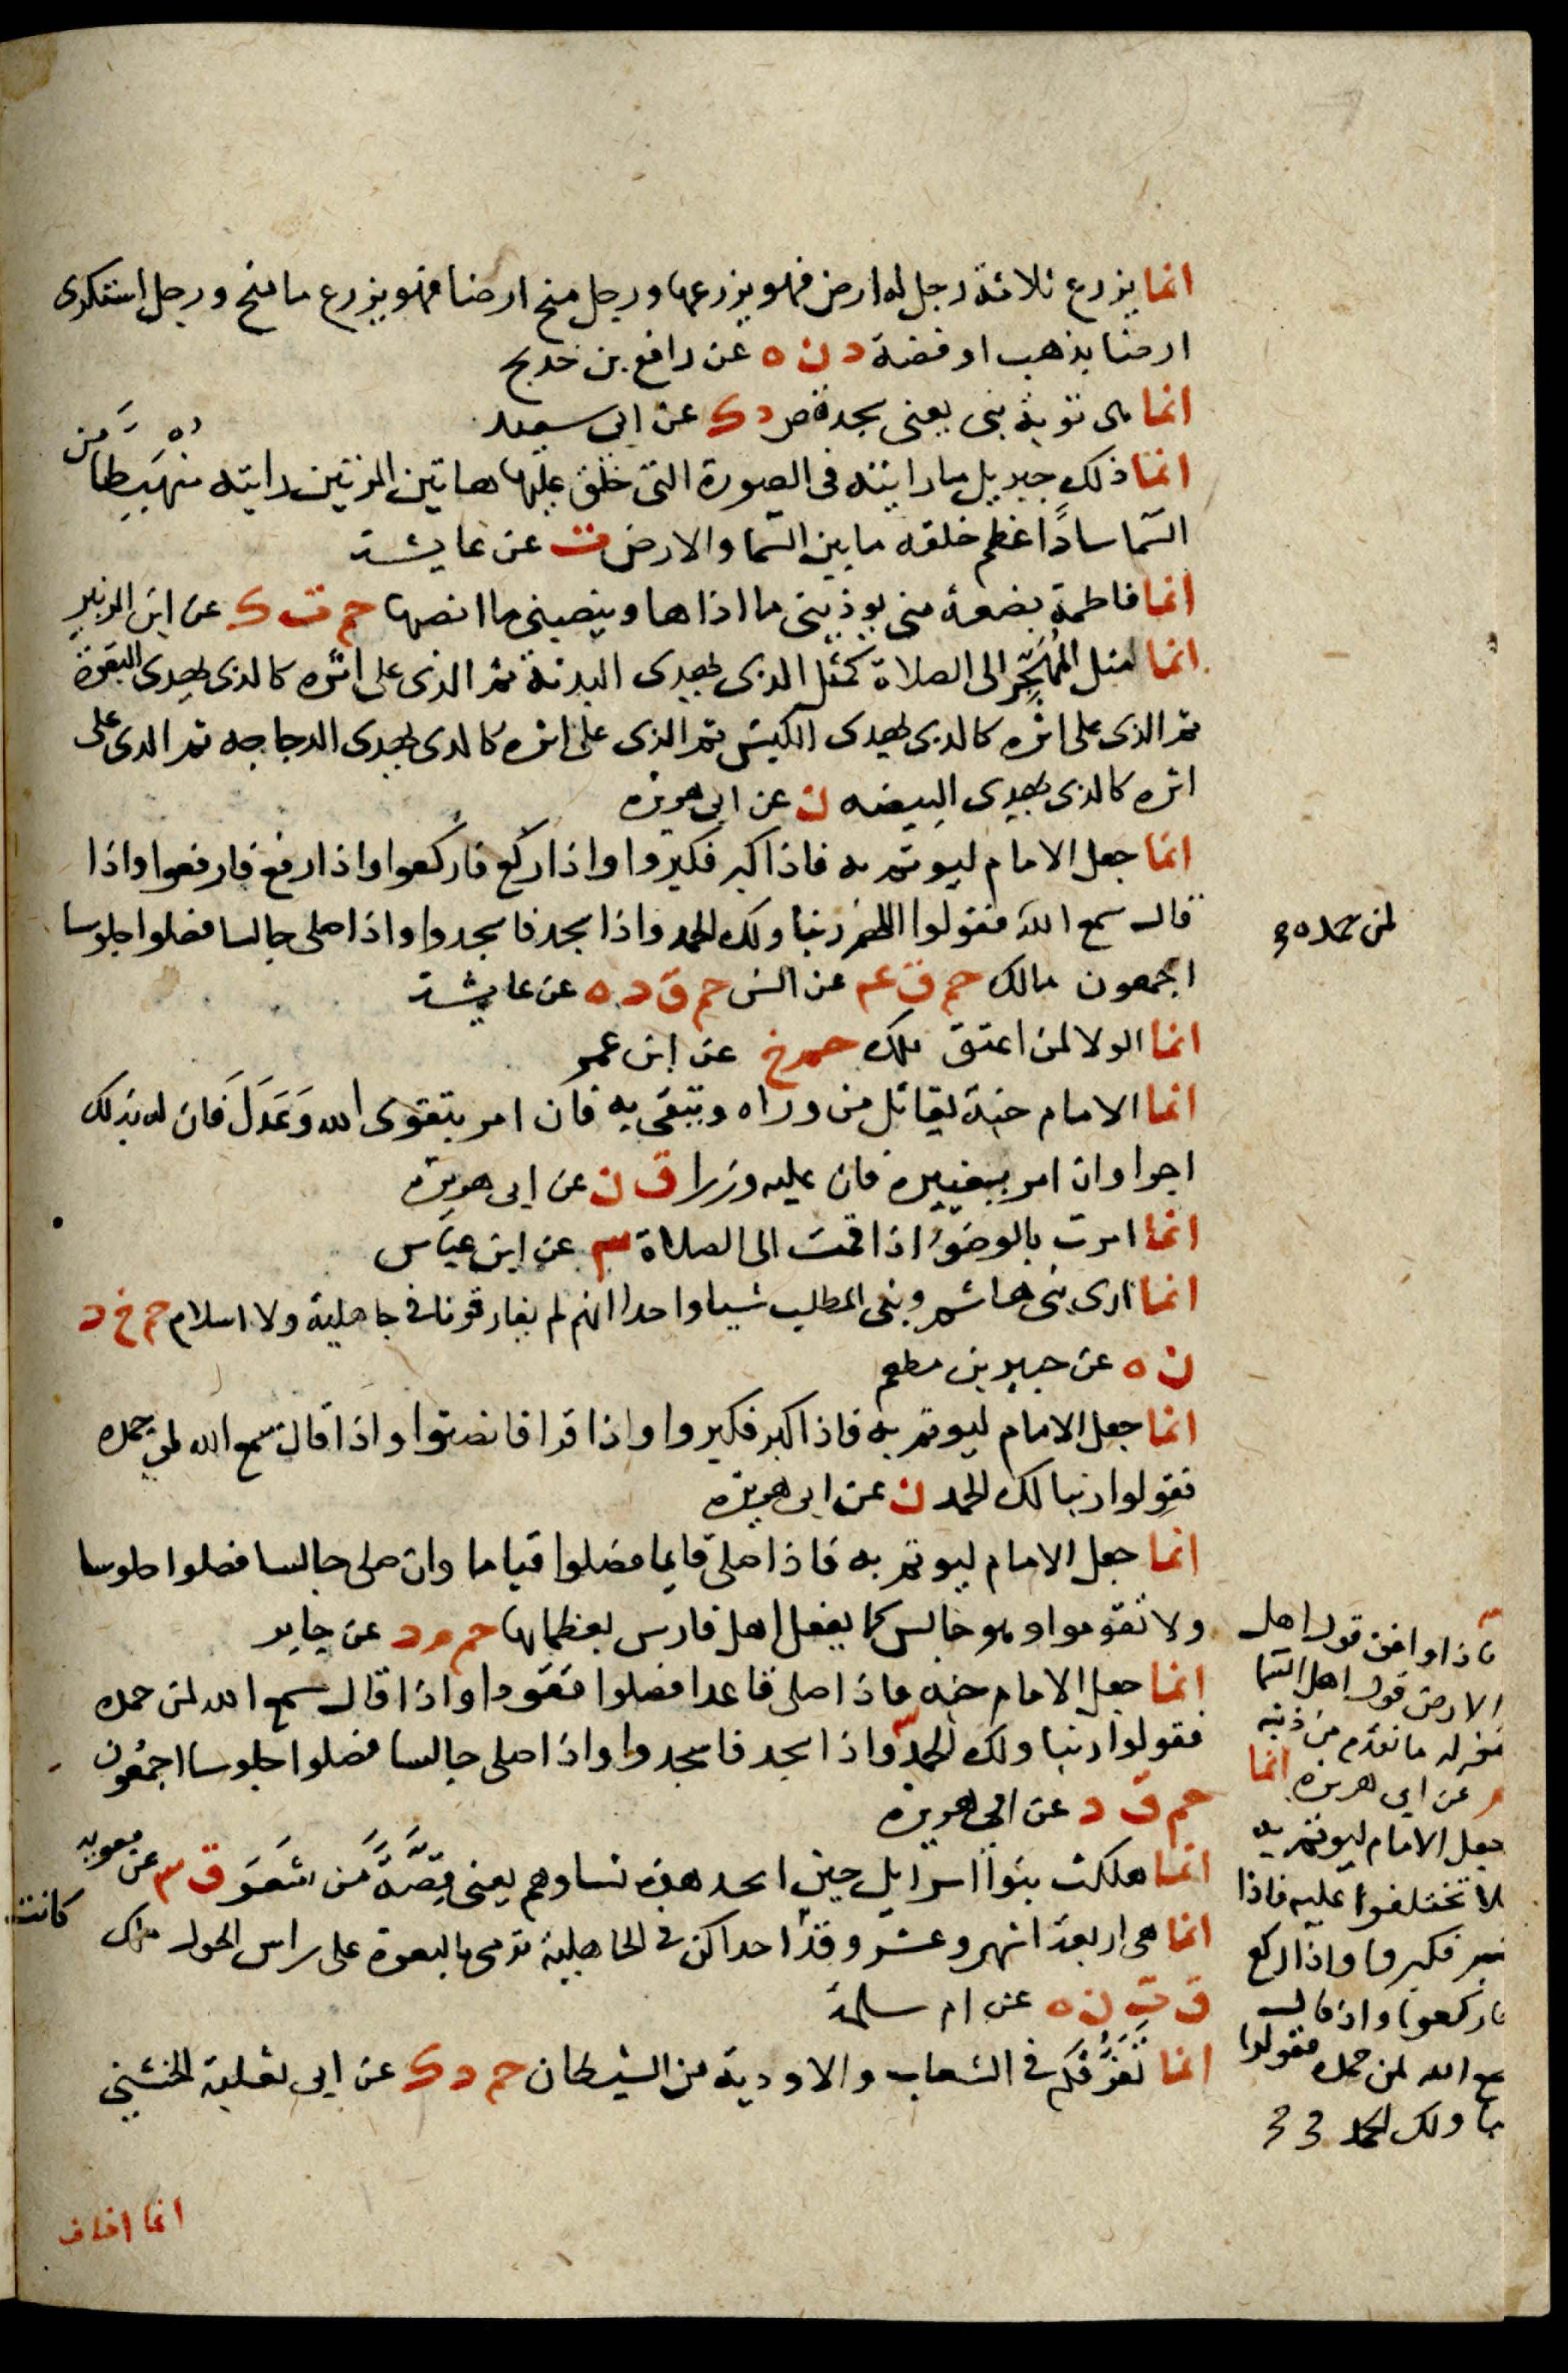 انما يزرع ثلاثة رجل له ارض فهو يزرعها ورجل منح ارضا فهو يزرع ما منح ورجل استكرى
ارضا بذهب او فضة د ن ه عن رافع بن خديج
انما هى توبة نبى يعنى سجدة ص د ك عن ابى سعيد
انما ذلك جبريل ما رايته فى الصورة التى خلق عليها هاتين المرتين رايته منهبطا من
السما سادًا عظم خلقه ما بين السما والارض ت عن عايشة
انما فاطمة بضعة منى يوذينى ما اذاها وينصبنى ما انصبها حم ت ك عن ابن الزبير
انما مثل المُهَجِّر الى الصلاة كمثل الذى يهدى البدنة ثم الذى على اثره كالذى يهدى البقرة
ثم الذى على اثره كالذى يهدى الكبش ثم الذى على اثره كالذى يهدى الدجاجه ثم الذى على
اثره كالذى يهدى البيضه ن عن ابى هريره
انما جعل الامام ليوتم به فاذا كبر فكبروا واذا ركع فاركعوا واذا رفع فارفعوا واذا
قال سمع الله فقولوا اللهم ربنا ولك الحمد واذا سجد فاسجدوا واذا صلى جالسا فصلوا جلوسا
لمن حمده
اجمعون مالك حم ق عم عن انس حم ق د ه عن عايشة
انما الولا لمن اعتق ملك حم خ عن ابن عمر
انما الامام جنة يقاتل من وراه ويتقى به فان امر بتقوى الله وَعَدَلَ فَان له بذلك
اجرا وان امر بغيره فان عليه وزرا ق ن عن ابى هريره
انما امرت بالوضوُ اذا قمت الى الصلاة عن ابن عباس
انما ارى بنى هاشم وبنى المطلب شيا واحدا انهم لم يفارقونا فى جاهلية ولا اسلام حم خ د
ن ه عن جبير بن مطعم
انما جعل الامام ليوتم به فاذا كبر فكبروا واذا قرا فانصتوا واذا قال سمع الله لمن حمده
فقولوا ربنا لك الحمد ن عن ابى هريره
انما جعل الامام ليوتم به فاذا صلى قايما فصلوا قياما وان صلى جالسا فصلوا جلوسا
ولا تقوموا وهو جالس كما يفعل اهل فارس بعظمايها حم م د عن جابر
انما جعل الامام جنه فاذا صلى قاعدا فصلوا قعودا واذا قال سمع الله لمن حمده
فقولوا ربنا ولك الحمد واذا سجد فاسجدوا واذا صلى جالسا فصلوا جلوسا اجمعون
حم ق د عن ابى هريره
انما هلكت بنوا اسرايل حين اتخذ هذه نساوهم يعنى قِصَّةً مَن شَعَرَ ق عن معويه
انما هى اربعة اشهر وعشر وقد احداكن فى الجاهلية ترمى بالبعرة على راس الحول مالك
كانت
ق ت ن ه عن ام سلمة
انما تَفَرُّقكم فى الشعاب والاودية من الشيطان حم د ك عن ابى ثعلبة الخشنى
فاذا وافق قول اهل
الارض قول اهل السما
غفر له ما تقدم من ذنبه
م عن ابى هريره انما
جعل الامام ليوتم به
فلا تختلفوا عليه فاذا
كبر فكبروا واذا ركع
فاركعوا واذا قال
سمع الله لمن حمده فقولوا
ربنا ولك الحمد
انما اخاف